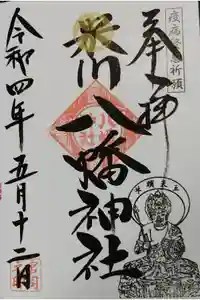 疫病終息祈願
奉拝
米川八幡神社
令和四年五月十二日